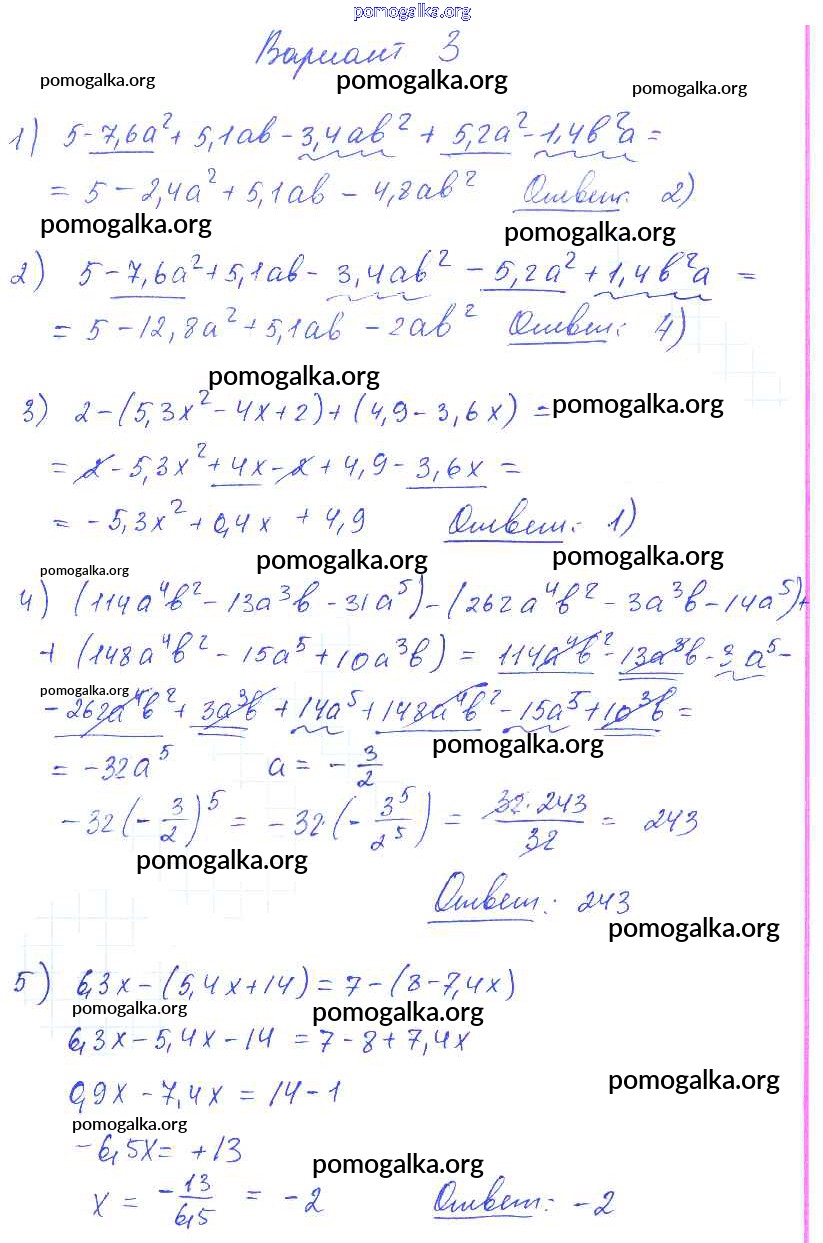 pomogalka.org
Вариант 3
pomogalka.org pomogalka.org pomogalka.org
1) 5-7,6a²+5,1ab-3,4ab²+5,2a²-1,4b²a=
=5-2,4a²+5,1ab-4,8ab² Ответ: 2)
pomogalka.org pomogalka.org
2) 5-7,6a²+5,1ab-3,4ab²-5,2a²+1,4b²a=
=5-12,8a²+5,1ab-2ab² Ответ: 4)
pomogalka.org
3) 2-(5,3x²-4x+2)+(4,9-3,6x)= pomogalka.org
=2-5,3x²+4x-2+4,9-3,6x=
=-5,3x²+0,4x+4,9 Ответ: 1)
pomogalka.org pomogalka.org pomogalka.org
4) (114a⁴b²-13a³b-31a⁵)-(262a⁴b²-3a³b-14a⁵)+
+(148a⁴b²-15a⁵+10a³b)=114a⁴b²-13a³b-3 a⁵-
pomogalka.org
-262a⁴b²+3a³b+14a⁵+148a⁴b²-15a⁵+10³b=
pomogalka.org
=-32a⁵ a=-3/2
-32(-3/2)⁵=-32·(-3⁵/2⁵)=32·243/32=243
pomogalka.org
Ответ: 243
pomogalka.org
5) 6,3x-(5,4x+14)=7-(8-7,4x)
pomogalka.org pomogalka.org
6,3x-5,4x-14=7-8+7,4x
pomogalka.org
0,9x-7,4x=14-1
pomogalka.org
-6,5x=+13
pomogalka.org
x=-13/6,5=-2 Ответ: -2